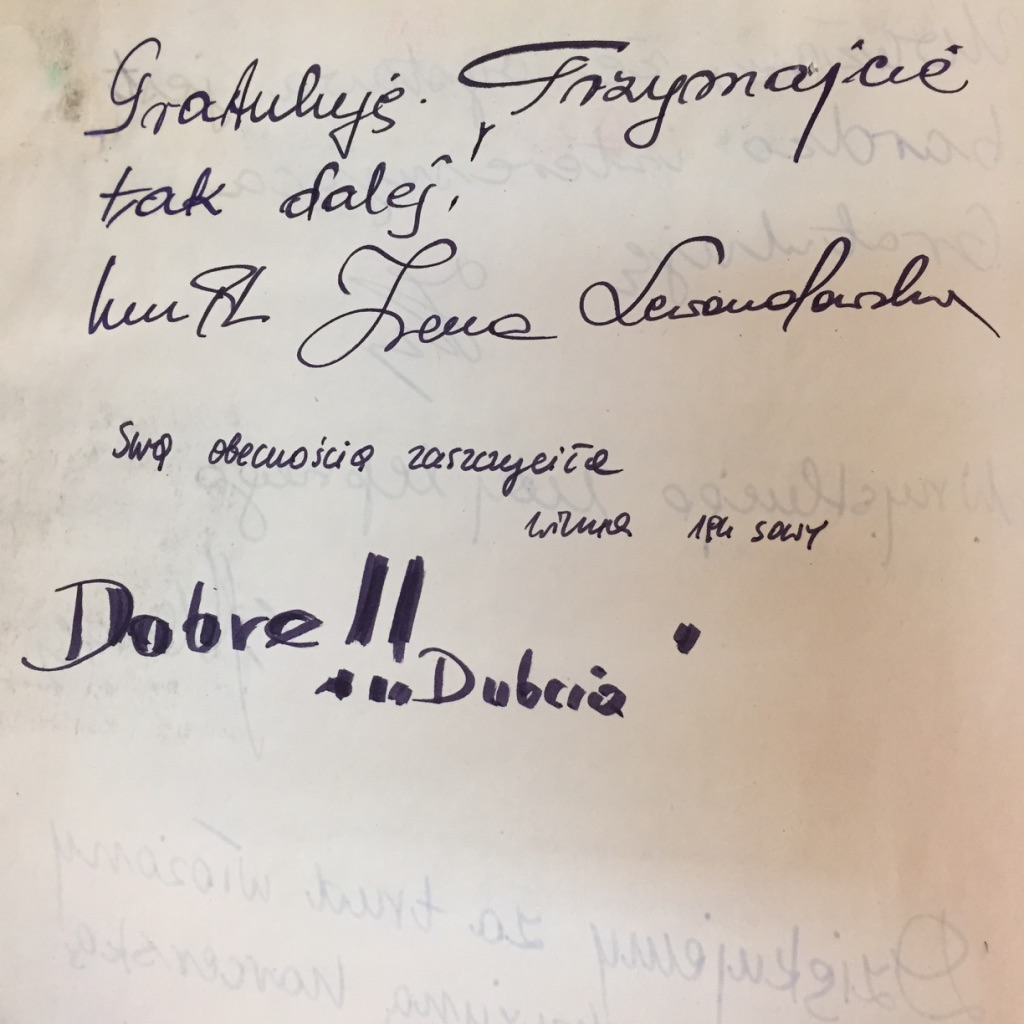 Gratuluję. Trzymajcie
tak dalej!
Irena Lewandowska
Swą obecnością zaszczyciła
sowy
Dobre!!
...Dubcia